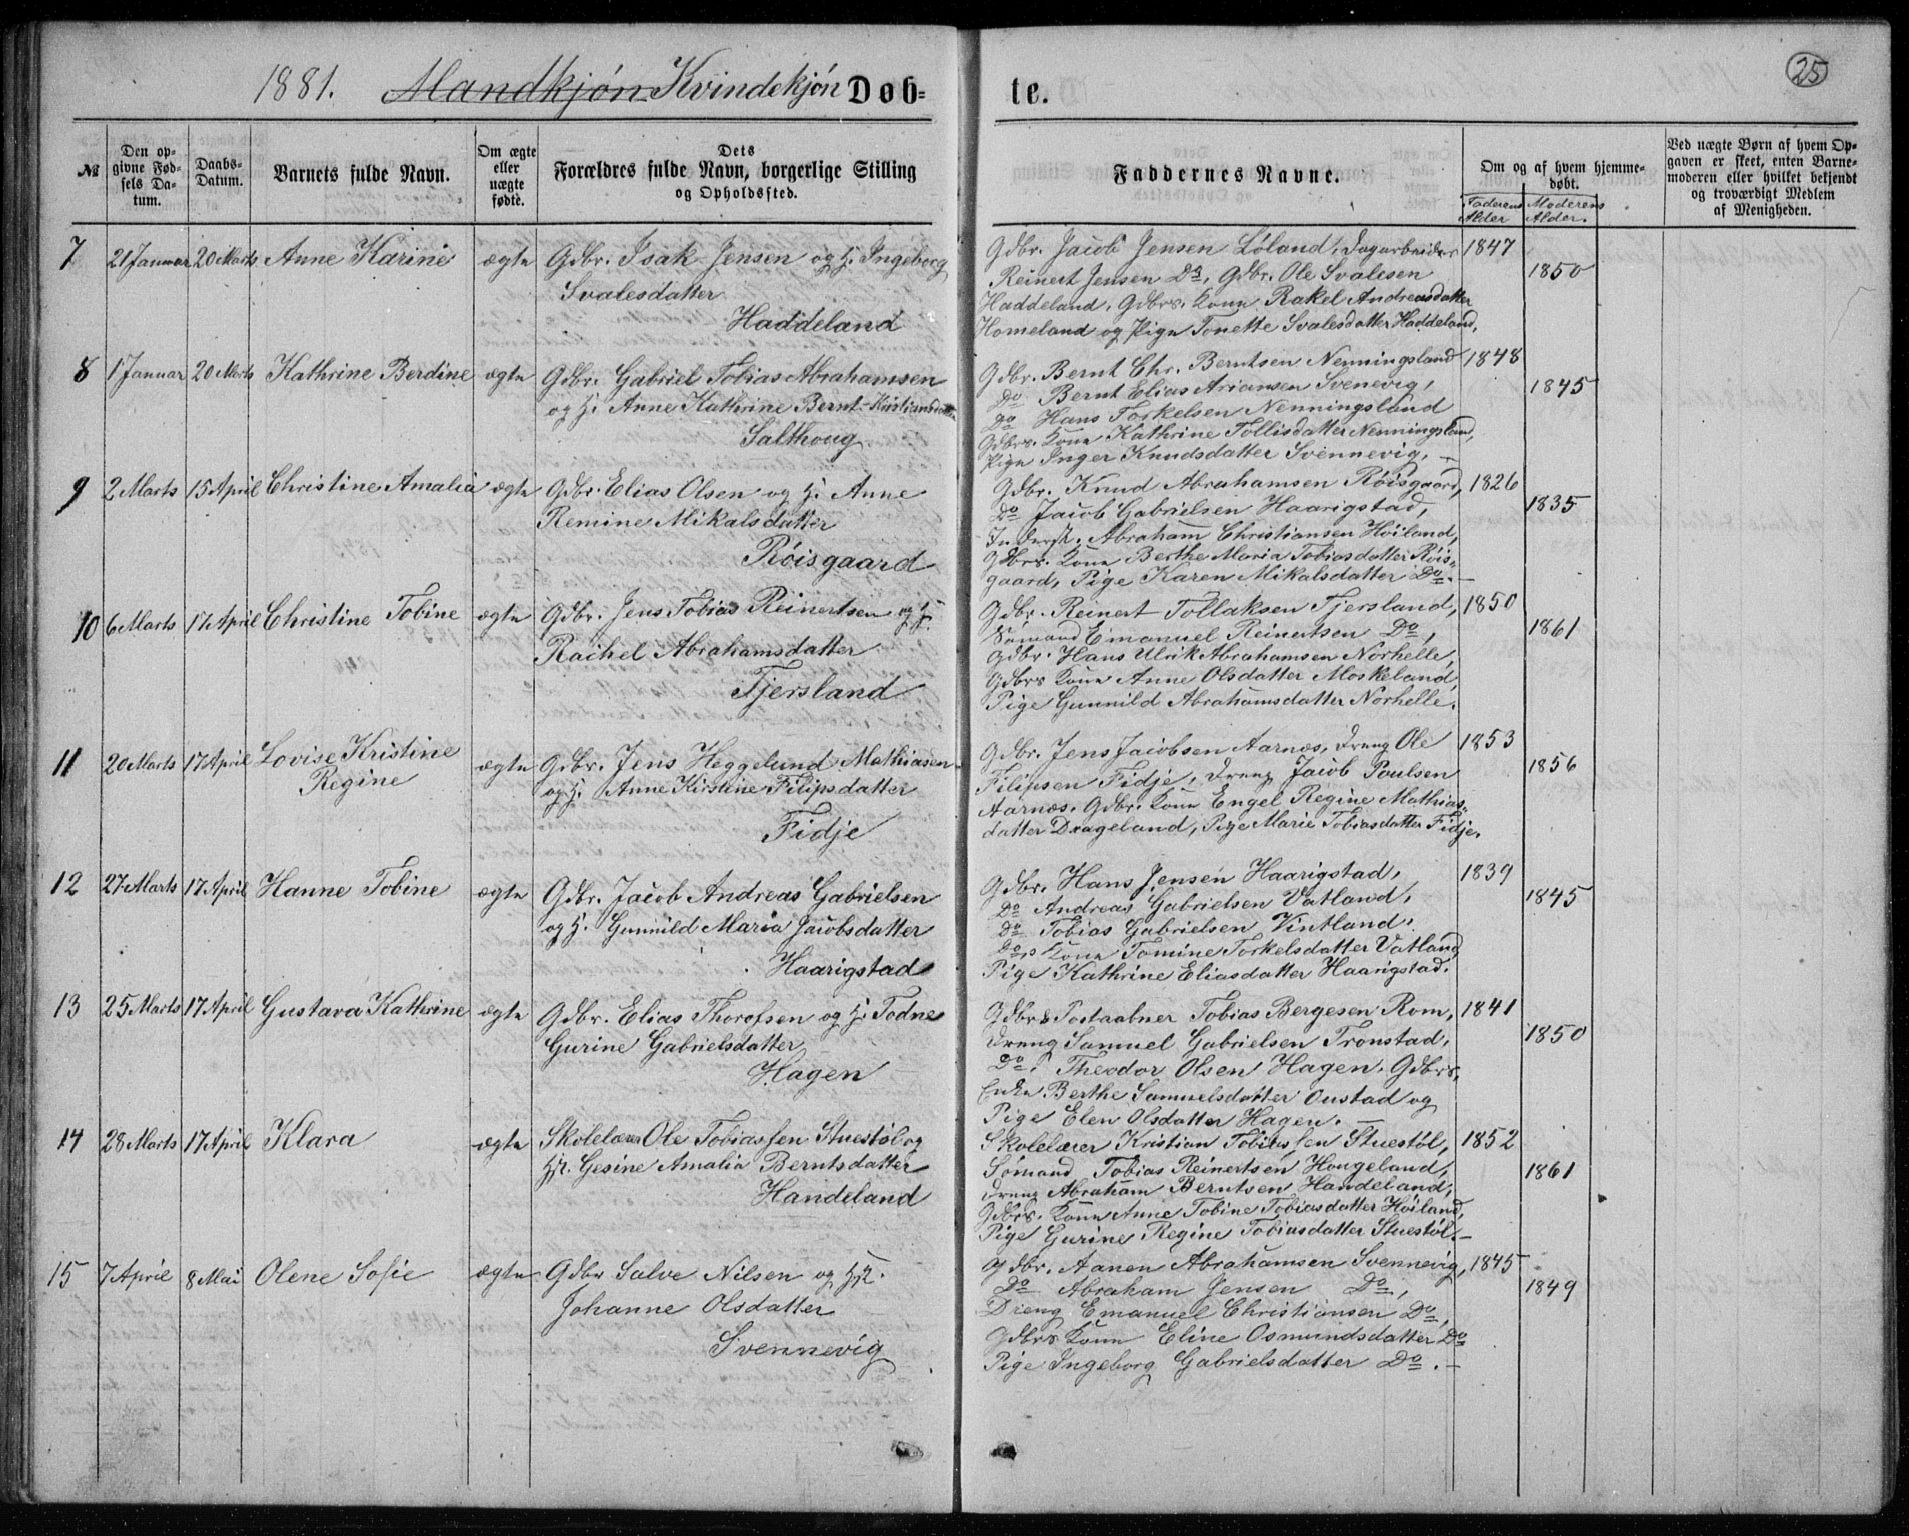 1881. Mandkjøn Kvindekjøn Døb-
te.
25
№
Den op-
givne Fød-
sels Da-
tum.
Daabs-
Datum.
Barnets fulde Navn.
Om ægte
eller
uægte
fødte.
Dets
Forældres fulde Navn, borgerlige Stilling
og Opholdssted.
Faddernes Navne.
Om og af hvem hjemme-
døbt.
Faderens
Alder
Moderens
Alder.
Ved uægte Børn af hvem Op-
gaven er skeet, enten Barne-
moderen eller hvilket bekjendt
og troværdigt Medlem
af Menigheden.
7 21 Januar 20 Marts Anne Karine ægte Gdbr. Isak Jensen og H. Ingeborg
Svalesdatter
Haddeland
Gdbr. Jacob Jensen Løland, Dagarbeider 1847
Reinert Jensen Do, Gdbr. Ole Svalesen 1850
Haddeland, Gdbrs. Kone Rakel Andreasdatter
Homeland og Pige Tonette Svalesdatter Haddeland,
8 1 Januar 20 Marts Kathrine Berdine ægte Gdbr. Gabriel Tobias Abrahamsen
og H. Anne Kathrine Bernt-Kristiansdatter
Salthoug
Gdbr. Bernt Chr. Berntsen Nenningsland 1848
Do Bernt Elias Ariansen Svenevig, 1845
Do Hans Torkelsen Nenningsland
Gdbrs. Kone Kathrine Tollisdatter Nenningsland,
Pige Inger Knudsdatter Svennevig, –
9 2 Marts 15 April Christine Amalia ægte Gdbr. Elias Olsen og H. Anne
Remine Mikalsdatter
Røisgaard
Gdbr. Knud Abrahamsen Røisgaard, 1826
Do Jacob Gabrielsen Haarigstad, 1835
Inderst. Abraham Christiansen Høiland,
Gdbrs. Kone Berthe Maria Tobiasdatter Røis-
gaard, Pige Karen Mikalsdatter Do. –
10 6 Marts 17 April Christine Tobine ægte Gdbr. Jens Tobias Reinertsen og H.
Rachel Abrahamsdatter
Tjersland
Gdbr. Reinert Tollaksen Tjersland, 1850
Sømand Emanuel Reinertsen Do, 1861
Gdbr. Hans Ulrik Abrahamsen Norhelle,
Gdbrs Kone Anne Olsdatter Moskeland,
Pige Gunnild Abrahamsdatter Norhelle.
11 20 Marts 17 April Lovise Kristine
Regine
ægte Gdbr. Jens Heggelund Mathiasen
og H. Anne Kirstine Filipsdatter
Fidje
Gdbr. Jens Jacobsen Aarnæs, Dreng Ole 1853
Filipsen Fidje, Dreng Jacob Poulsen 1856
Aarnæs. Gdbr. Kone Engel Regine Mathias-
datter Drageland, Pige Marie Tobiasdatter Fidje.
12 27 Marts 17 April Hanne Tobine ægte Gdbr. Jacob Andreas Gabrielsen
og H. Gunnild Maria Jacobsdatter
Haarigstad
Gdbr. Hans Jensen Haarigstad, 1839
Do Andreas Gabrielsen Vatland, 1845
Do Tobias Gabrielsen Vintland.
Dos Kone Tomine Torkelsdatter Vatland,
Pige Kathrine Eliasdatter Haarigstad.
13 25 Marts 17 April Gustava Kathrine ægte Gdbr. Elias Thorofsen og H. Todne
Gurine Gabrielsdatter
Hagen
Gdbr & Postaabner Tobias Bergesen Rom, 1841
Dreng Samuel Gabrielsen Tronstad, 1850
Do. Theodor Olsen Hagen. Gdbrs,
Enke Berthe Samuelsdatter Oustad og
Pige Elen Olsdatter Hagen. –
14 28 Marts 17 April Klara ægte Skolelærer Ole Tobiassen Stuestøl og
Hst. Gesine Amalia Berntsdatter
Handeland
Skolelærer Kristian Tobiassen Stuestøl, 1852
Sømand Tobias Reinertsen Hougeland, 1861
Dreng Abraham Berntsen Handeland,
Gdbrs. Kone Anne Tobine Tobiasdatter Høiland,
Pige Gurine Regine Tobiasdatter Stuestøl. –
15 7 April 8 Mai Olene Sofie ægte Gdbr Salve Nilsen og Hst.
Johanne Olsdatter
Svennevig
Gdbr. Aanen Abrahamsen Svennevig, 1845
Do Abraham Jensen Do, 1849
Dreng Emanuel Christiansen Do,
Gdbrs Kone Eline Osmundsdatter Do
Pige Ingeborg Gabrielsdatter Do. –